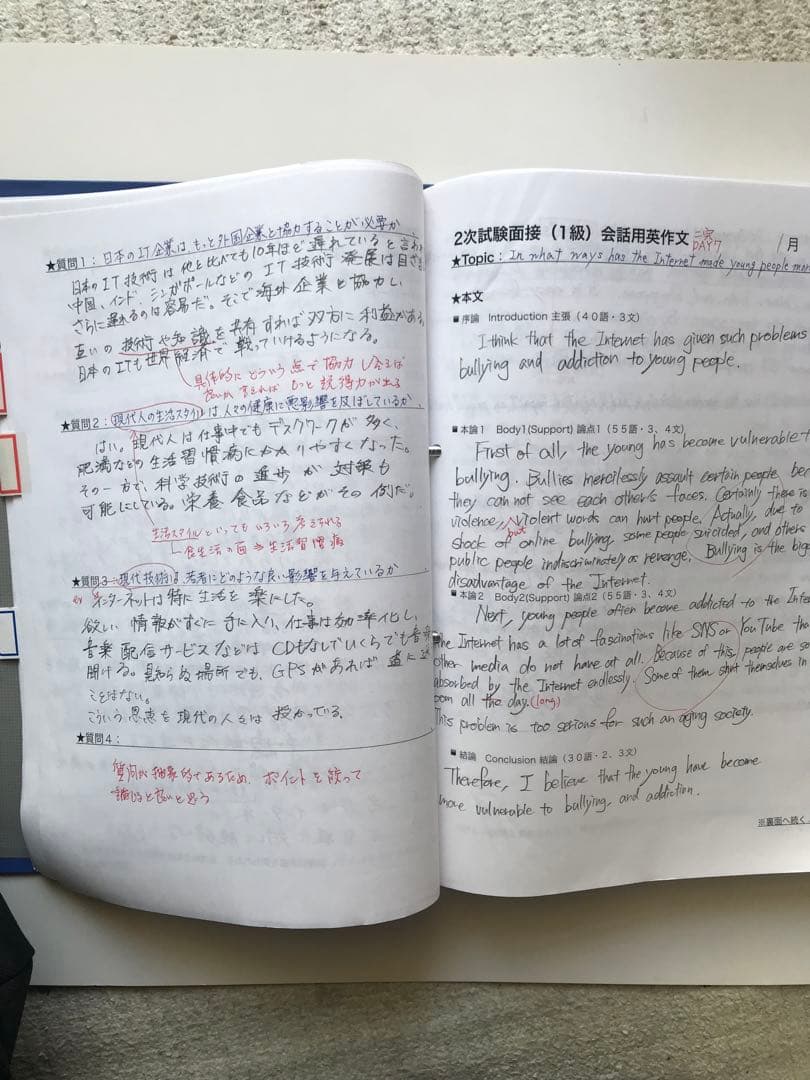 ★質問1：日本のIT企業は、もっと外国企業と協力することが必要か
日本のIT技術は他と比べても10年ほど遅れていると言われ
中国、インド、シンガポールなどのIT技術発展は目ざま
さらに遅れるのは容易だ。そこで海外企業と協力し
互いの技術や知識を共有すれば双方に利益がある。
日本のITも世界経済で戦っていけるようになる。
具体的にどういう点で協力し合えば
もっと説得力が出る
★質問2：現代人の生活スタイルは人々の健康に悪影響を及ぼしているか
はい。現代人は仕事中でもデスクワークが多く、
肥満などの生活習慣病にかかりやすくなった。
その一方で、科学技術の進歩が対策も
可能にしている。栄養食品などがその例だ。
生活スタイルといってもいろいろ考えられる
食生活の面→生活習慣病
★質問3：現代技術は、若者にどのような良い影響を与えているか
インターネットは特に生活を楽にした。
欲しい情報がすぐに手に入り、仕事は効率化し、
音楽配信サービスなどはCDもなしでいくらでも音楽
聞ける。見知らぬ場所でも、GPSがあれば道に
ことはない。
こういう恩恵を現代の人々は授かっている。
★質問4：
質問が抽象的であるため、ポイントを絞って
論じると良いと思う
2次試験面接（1級）会話用英作文 二次 DAY7
1月
★Topic：In what ways has the Internet made young people more
★本文
■序論 Introduction 主張（40語・3文）
I think that the Internet has given such problems
bullying and addiction to young people.
■本論1 Body1(Support) 論点1（55語・3、4文）
First of all, the young has become vulnerable t
bullying. Bullies mercilessly assault certain people bec
they can not see each other's faces. Certainly there is
violence, but violent words can hurt people. Actually, due to
shock of online bullying, some people suicided, and others
public people indiscriminately as revenge. Bullying is the bigg
disadvantage of the Internet.
■本論2 Body2(Support) 論点2（55語・3、4文）
Next, young people often become addicted to the Inte
the Internet has a lot of fascinations like SNS or YouTube tha
other media do not have at all. Because of this, people are so
absorbed by the Internet endlessly. Some of them shut themselves in
oom all the day. (long)
This problem is too serious for such an aging society.
■結論 Conclusion 結論（30語・2、3文）
Therefore, I believe that the young have become
more vulnerable to bullying, and addiction.
※裏面へ続く